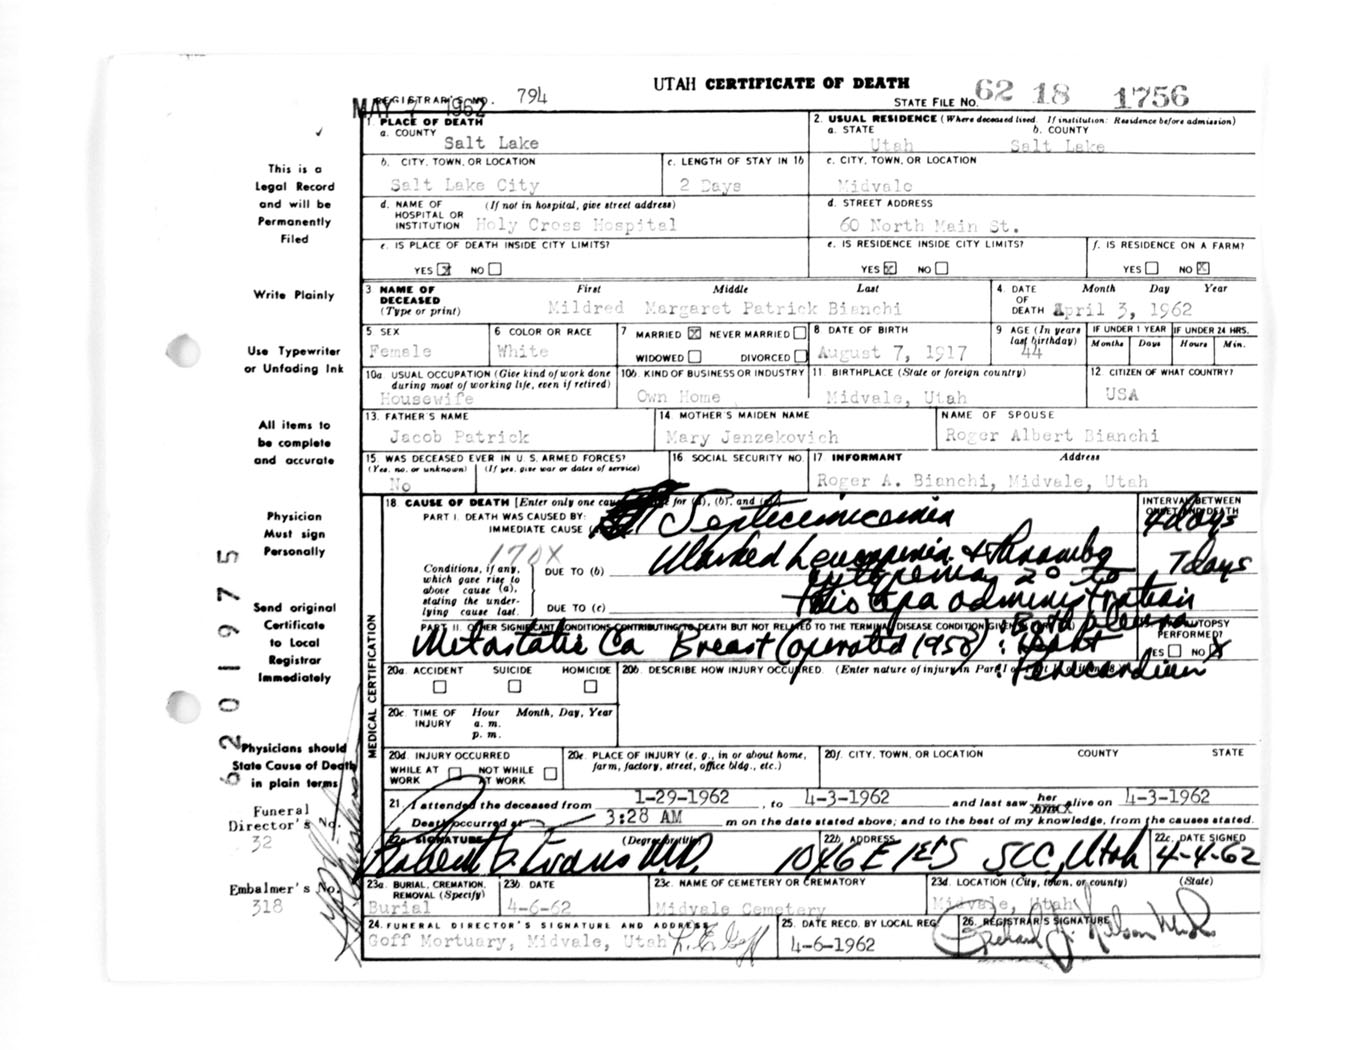 UTAH CERTIFICATE OF DEATH
REGISTRAR'S NO. 794
MAY 7 1962
STATE FILE No. 62 18 1756
1. PLACE OF DEATH
a. COUNTY
Salt Lake
2. USUAL RESIDENCE (Where deceased lived. If institution: Residence before admission)
a. STATE b. COUNTY
Utah Salt Lake
b. CITY, TOWN, OR LOCATION
Salt Lake City
c. LENGTH OF STAY IN 1b
2 Days
c. CITY, TOWN, OR LOCATION
Midvale
d. NAME OF HOSPITAL OR INSTITUTION (If not in hospital, give street address)
Holy Cross Hospital
d. STREET ADDRESS
60 North Main St.
e. IS PLACE OF DEATH INSIDE CITY LIMITS?
YES X NO
e. IS RESIDENCE INSIDE CITY LIMITS?
YES X NO
f. IS RESIDENCE ON A FARM?
YES NO X
3 NAME OF DECEASED (Type or print)
First Middle Last
Mildred Margaret Patrick Bianchi
4. DATE OF DEATH Month Day Year
April 3, 1962
5 SEX
Female
6 COLOR OR RACE
White
7 MARRIED X NEVER MARRIED
WIDOWED DIVORCED
8 DATE OF BIRTH
August 7, 1917
9 AGE (In years last birthday)
44
IF UNDER 1 YEAR
Months Days
IF UNDER 24 HRS.
Hours Min.
10a. USUAL OCCUPATION (Give kind of work done during most of working life, even if retired)
Housewife
10b. KIND OF BUSINESS OR INDUSTRY
Own Home
11 BIRTHPLACE (State or foreign country)
Midvale, Utah
12 CITIZEN OF WHAT COUNTRY?
USA
13. FATHER'S NAME
Jacob Patrick
14 MOTHER'S MAIDEN NAME
Mary Jenzekovich
NAME OF SPOUSE
Roger Albert Bianchi
15 WAS DECEASED EVER IN U.S. ARMED FORCES?
(Yes, no, or unknown) (If yes, give war or dates of service)
No
16 SOCIAL SECURITY NO.
17 INFORMANT Address
Roger A. Bianchi, Midvale, Utah
18 CAUSE OF DEATH [Enter only one cau for (a), (b), and (c)]
INTERVAL BETWEEN ONSET AND DEATH
PART I. DEATH WAS CAUSED BY:
IMMEDIATE CAUSE (a) Septicemicemia 4 days
170X
Conditions, if any, which gave rise to above cause (a), stating the underlying cause last.
DUE TO (b) Marked Leucopenia & Thrombo 7 days
cytopenia 2° to
DUE TO (c) Thio tepa administration
PART II. OTHER SIGNIFICANT CONDITIONS CONTRIBUTING TO DEATH BUT NOT RELATED TO THE TERMINAL DISEASE CONDITION GIVEN
Metastatic Ca Breast (operated 1958): Both Pleura
Pericardium
AUTOPSY PERFORMED?
YES NO X
MEDICAL CERTIFICATION
20a. ACCIDENT SUICIDE HOMICIDE
20b. DESCRIBE HOW INJURY OCCURRED. (Enter nature of injury in Part I or Part II of item 18.)
20c. TIME OF INJURY Hour Month, Day, Year
a. m.
p. m.
20d. INJURY OCCURRED
WHILE AT WORK NOT WHILE AT WORK
20e. PLACE OF INJURY (e. g., in or about home, farm, factory, street, office bldg., etc.)
20f. CITY, TOWN, OR LOCATION COUNTY STATE
21. I attended the deceased from 1-29-1962, to 4-3-1962 and last saw her him alive on 4-3-1962
Death occurred at 3:28 AM m on the date stated above; and to the best of my knowledge, from the causes stated.
22a. SIGNATURE (Degree or title)
Robert G. Evans M.D.
22b. ADDRESS
1046 E 1st S SLC, Utah
22c. DATE SIGNED
4-4-62
23a. BURIAL, CREMATION, REMOVAL (Specify)
Burial
23b. DATE
4-6-62
23c. NAME OF CEMETERY OR CREMATORY
Midvale Cemetery
23d. LOCATION (City, town, or county) (State)
Midvale, Utah
24. FUNERAL DIRECTOR'S SIGNATURE AND ADDRESS
Goff Mortuary, Midvale, Utah L. E. Goff
25. DATE RECD. BY LOCAL REG.
4-6-1962
26. REGISTRAR'S SIGNATURE
This is a
Legal Record
and will be
Permanently
Filed
Write Plainly
Use Typewriter
or Unfading Ink
All items to
be complete
and accurate
Physician
Must sign
Personally
Send original
Certificate
to Local
Registrar
Immediately
Physicians should
State Cause of Death
in plain terms
Funeral
Director's No.
32
Embalmer's No.
318
6201975